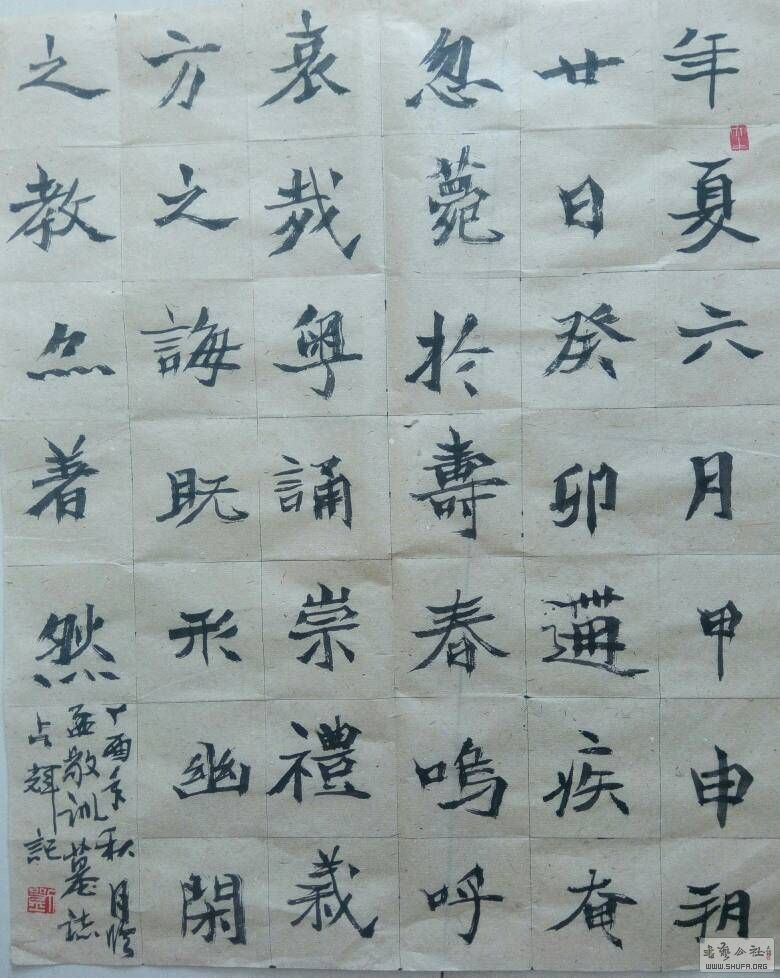 年夏六月甲申朔
廿日癸卯遘疾奄
忽薨於壽春嗚呼
哀哉粵誦崇禮義
方之誨既形幽閑
之教亦著然
丁酉年秋月临
孟敬训墓誌
占輝記
WWW.SHUFA.ORG